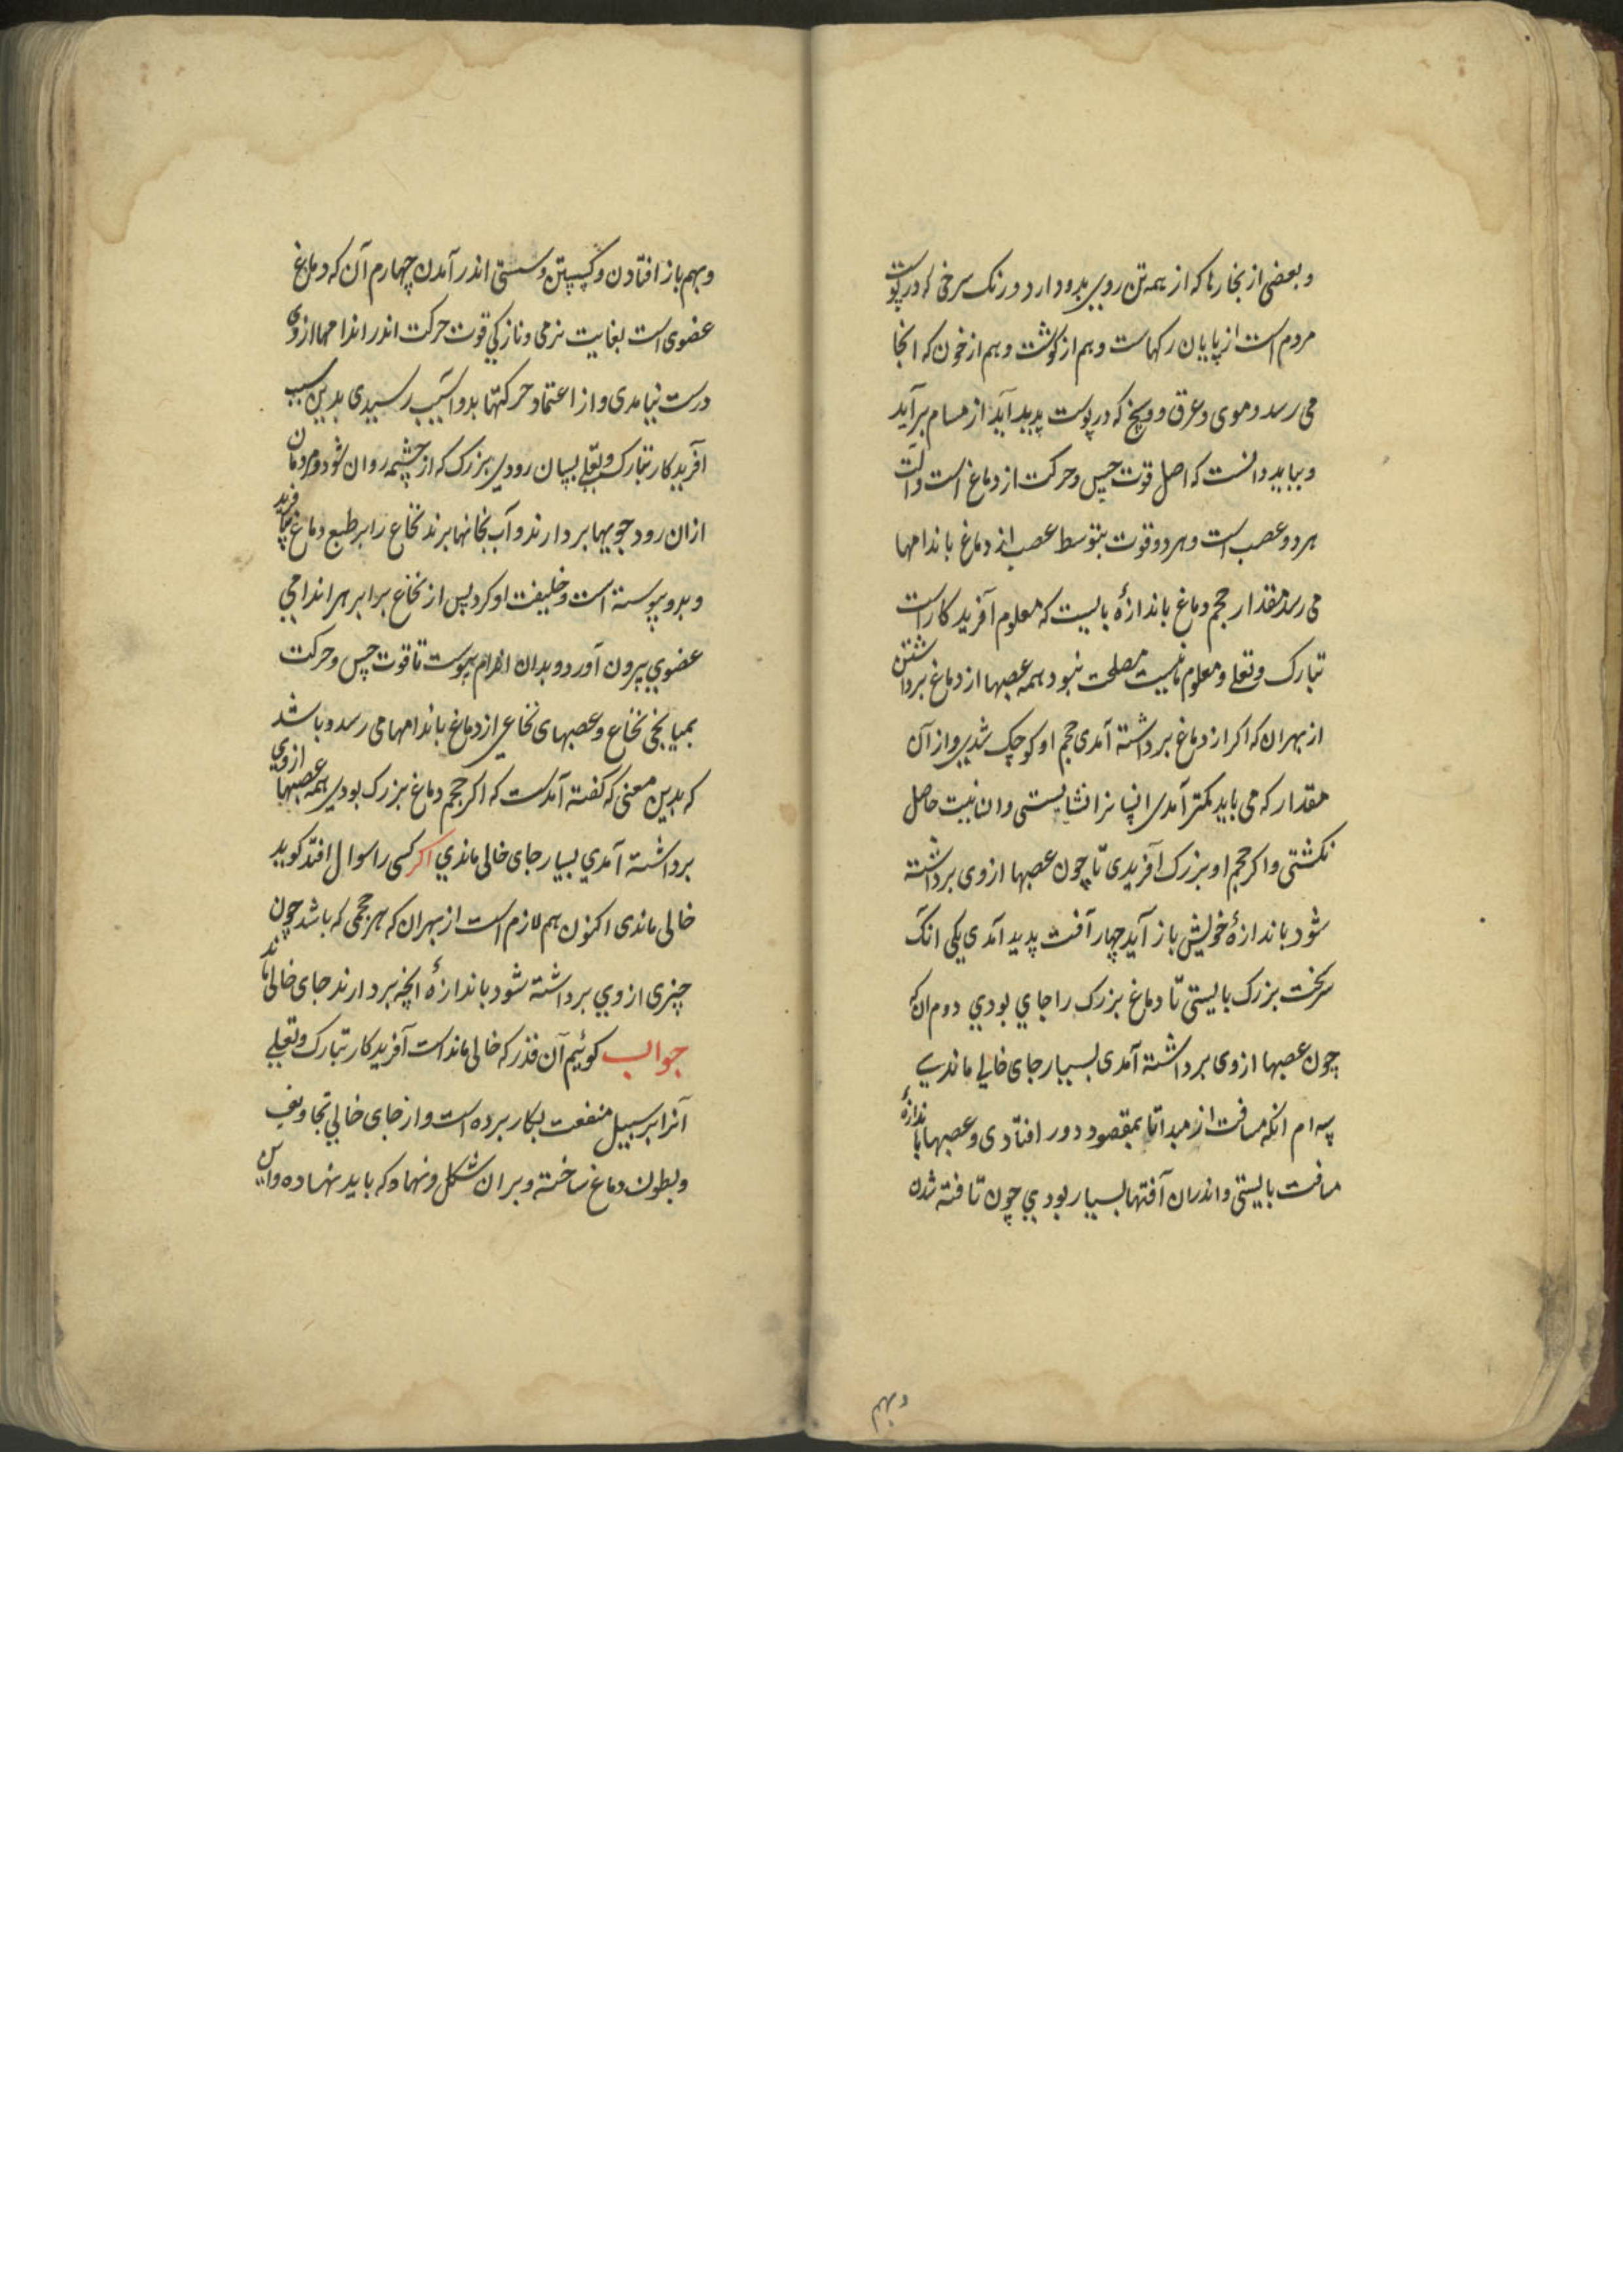 و بعضی از بخارها که از همه تن روی بدو دارد و رنک سرخی که در پوست
مردم است از پایان رکهاست و هم از کوشت و هم از خون که انجا
می رسد و موی و عرق و وسخ که در پوست پدید آید از مسام برآید
و بباید دانست که اصل قوت حس و حرکت از دماغ است و آلت
هر دو عصب است و هر دو قوت بتوسط عصب از دماغ باندامها
می رسد مقدار حجم دماغ باندازهٔ بایست که معلوم آفریدکار است
تبارک و تعلی و معلوم مانیست مصلحت نبود همه عصبها از دماغ برداشتن
از بهر ان که اکر از دماغ برداشته آمدی حجم او کوچک شدی و از آن
مقدار که می باید کمتر آمدی انسانرا نشایستی وان نیت حاصل
نکشتی و اکر حجم او بزرک آفریدی تا چون عصبها ازوی برداشته
شود باندازهٔ خویش باز آید چهار آفت پدید آمدی یکی انک
سر سخت بزرک بایستی تا دماغ بزرک را جای بودی دوم ان که
چون عصبها ازوی برداشته آمدی بسیار جای خالی ماندی
سه ام انکه مسافت از مبدا تا بمقصود دور افتادی و عصبها باندازهٔ
مسافت بایستی و اندران آفتها بسیار بودی چون تافته شدن
وبهم
و بهم باز افتادن و کسستن و سستی اندر آمدن چهارم آن که دماغ
عضوی است بغایت نرمی و نازکی قوت حرکت اندر اندامها ازوی
درست نیامدی و از اعتماد حرکتها بدو آسیب رسیدی بدین سبب
آفریدکار تبارک و تعلی بسان رودی بزرک که از چشمه روان شود و مردمان
ازان رود جویها بردارند و آب بخانها برند نخاع را بر طبع دماغ بیافرید
و بدو پیوسته است و خلیفت او کرد پس از نخاع برابر هر اندامی
عضوی بیرون آورد و بدان اندام پیوست تا قوت حس و حرکت
بمیانجی نخاع و عصبهای نخاعی از دماغ باندامها می رسد و باشد
که بدین معنی که کفته آمدست که اکر حجم دماغ بزرک بودی همه عصبها ازوی
برداشته آمدی بسیار جای خالی ماندی اکر کسی را سوال افتد کوید
خالی ماندی اکنون هم لازم است از بهر ان که هر حجمی که باشد چون
چیزی ازوی برداشته شود باندازهٔ انچه بردارند جای خالی ماند
جواب کوئیم آن قدر که خالی ماندست آفریدکار تبارک و تعلی
آنرا بر سبیل منفعت بکار برده است و از جای خالی تجاویف
و بطون دماغ ساخته و بران شکل و نهاد که باید نهاده و این